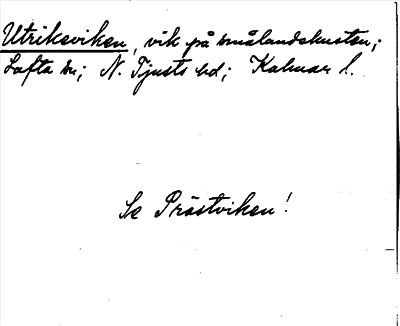 Utriksviken, vik på smålandskusten;
Lofta sn; N. Tjusts hd; Kalmar l.
Se Prästviken!